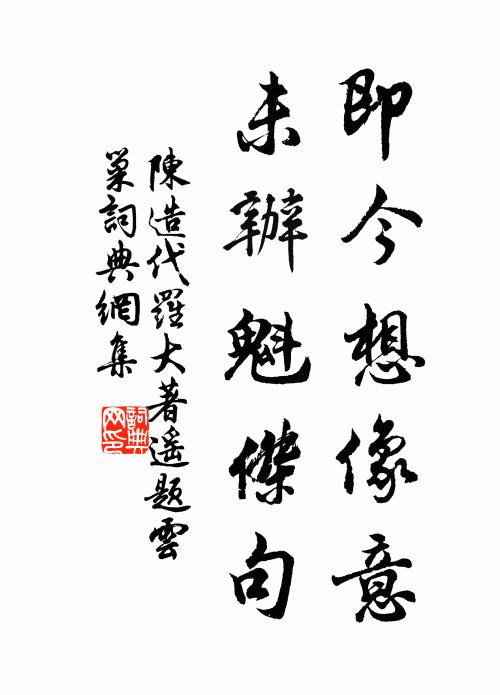 即今想像意
未辦魁傑句
陳造代羅大著遥題雲
巢詞典網集
詞典
网印